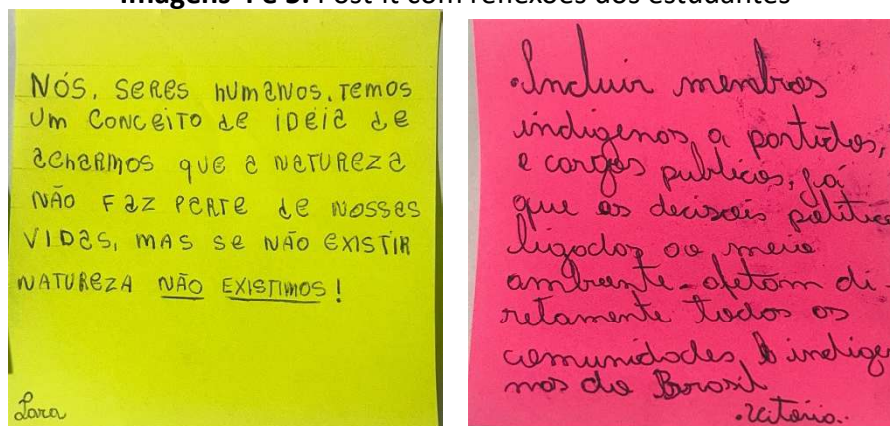 Imagens 4 e 5: Post-it com reflexões dos estudantes
Nós, seres humanos, temos
um conceito de ideia de
acharmos que a natureza
não faz parte de nossas
vidas, mas se não existir
natureza não existimos!
Lara
•Incluir membros
indigenos a partidos,
e cargos publicos, já
que as decisões política
ligados ao meio
ambiente afetam di-
retamente todos os
comunidades indige
nos do Brasil